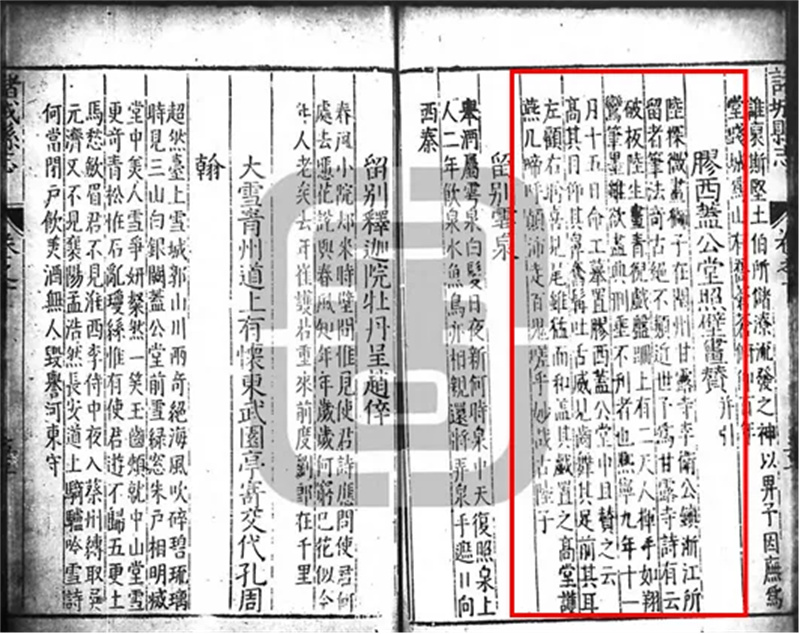 諸城縣志
誰裒斯堅土伯所儲潦流發之神以畀予因廡爲
堂踐城爲山有蒼百年
膠西蓋公堂照壁畫贊 并引
陸探微畫獅子在潤州甘露寺李衛公鎮浙江所
留者筆法奇古絕不類近世予爲甘露寺詩有云
破板陸生畫青猊戲盤跚上有二天人揮手如翔
鸞筆墨雖欲盡典刑垂不刊者也熙寧九年十一
月十五日命工摹置膠西蓋公堂中且贊之云
高其目仰其鼻奮髯吐舌威見齒舞其足前其耳
左顧右盼喜見尾雖猛而和蓋其戲置之高堂護
燕几啼呼顛沛走百鬼嗟乎妙哉古陸子
留別雩泉
舉酒屬雩泉白髮日夜新何時泉中天復照泉上
人二年飲泉水魚鳥亦相親還將弄泉手遮日向
西秦
留別釋迦院牡丹呈趙倅
春風小院却來時壁間惟見使君詩應問使君何
處去憑花說與春風知年年歲歲何窮已花似今
年人老矣去年崔護若重來前度劉郎在千里
大雪青州道上有懷東武園亭寄交代孔周
翰
超然臺上雪城郭山川兩奇絕海風吹碎碧琉璃
時見三山白銀闕蓋公堂前雪綠窓朱戶相明滅
堂中美人雪爭妍粲然一笑玉齒頰就中山堂雪
更奇青松怪石亂瓊絲惟有使君遊不歸五更上
馬愁斂眉君不見淮西李侍中夜入蔡州縛取吳
元濟又不見襄陽孟浩然長安道上騎驢吟雪詩
何當閉戶飲美酒無人毀譽河東守
諸城縣志
卷之